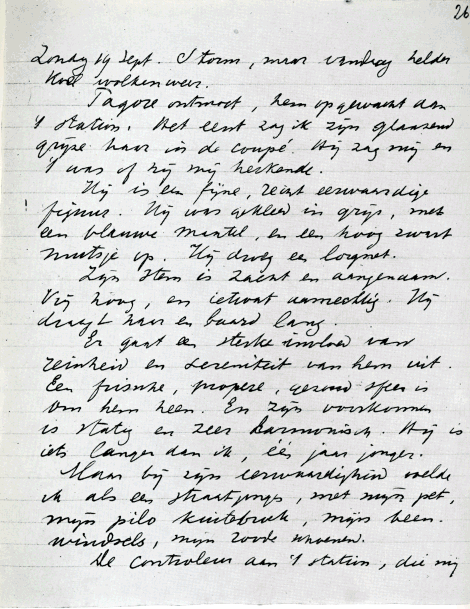 26
Zondag 19 Sept. Storm, maar vandaag helder
koel wolkenweer.
Tagore ontmoet, hem opgewacht aan
't station. Het eerst zag ik zijn glanzend
grijze haar in de coupé. Hij zag mij en
't was of hij mij herkende.
Hij is een fijne, zeer eerwaardige
figuur. Hij was gekleed in grijs, met
een blauwe mantel, en een hoog zwart
mutsje op. Hij droeg een lorgnet.
Zijn stem is zacht en aangenaam.
Vrij hoog, en ietwat aamechtig. Hij
draagt haar en baard lang.
Er gaat een sterke invloed van
reinheid en sereniteit van hem uit.
Een frissche, propere, gezond sfeer is
om hem heen. En zijn voorkomen
is statig en zeer harmonisch. Hij is
iets langer dan ik, één jaar jonger.
Maar bij zijn eerwaardigheid voelde
ik als een straatjongen, met mijn pet,
mijn pilo kniebroek, mijn been-
windsels, mijn zware schoenen.
De controleur aan 't station, die mij